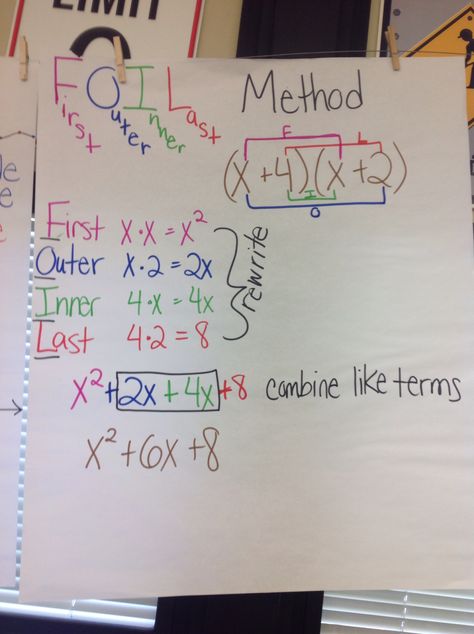 LIMIT
FOIL Method
First Outer Inner Last
F L
(x+4)(x+2)
I
O
First x·x=x²
Outer x·2=2x
Inner 4·x=4x
Last 4·2=8
rewrite
x²+2x+4x+8 combine like terms
x²+6x+8